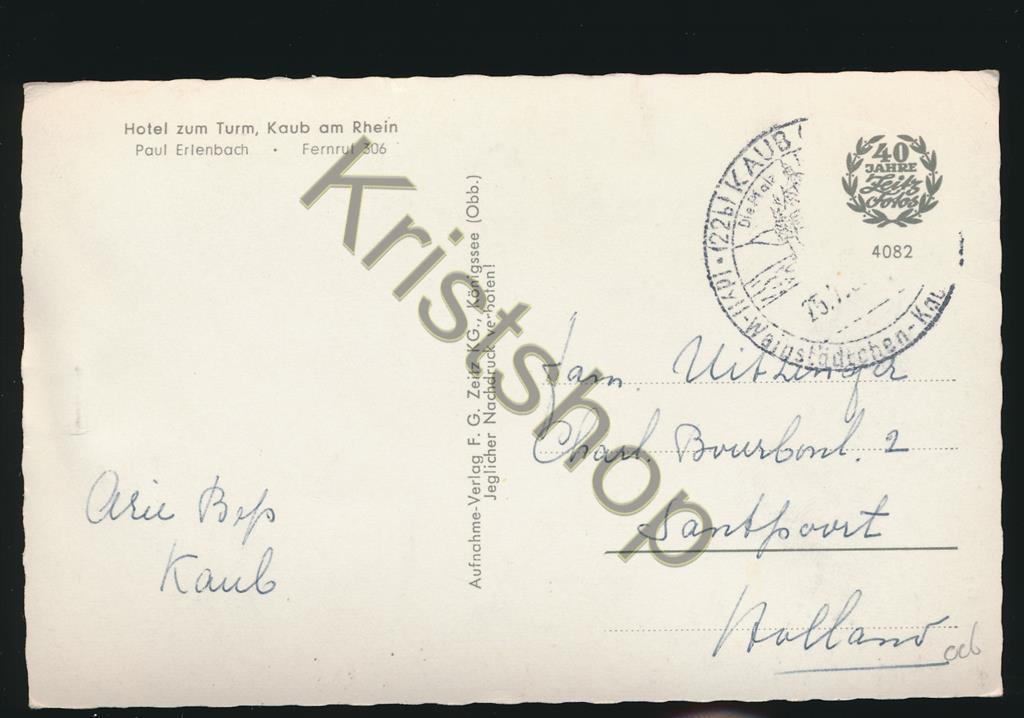 Hotel zum Turm, Kaub am Rhein
Paul Erlenbach • Fernruf 306
Aufnahme-Verlag F. G. Zeitz KG., Königssee (Obb.)
Jeglicher Nachdruck verboten!
(22b) KAUB (
Die Pfalz
25.7.
Idyll-Weinstädtchen-Kau
40
JAHRE
Zeitz
Fotos
4082
Fam. Uitzinger
Charl. Bourbonl. 2
Santpoort
Holland
Arie Bep
Kaub
Kristshop